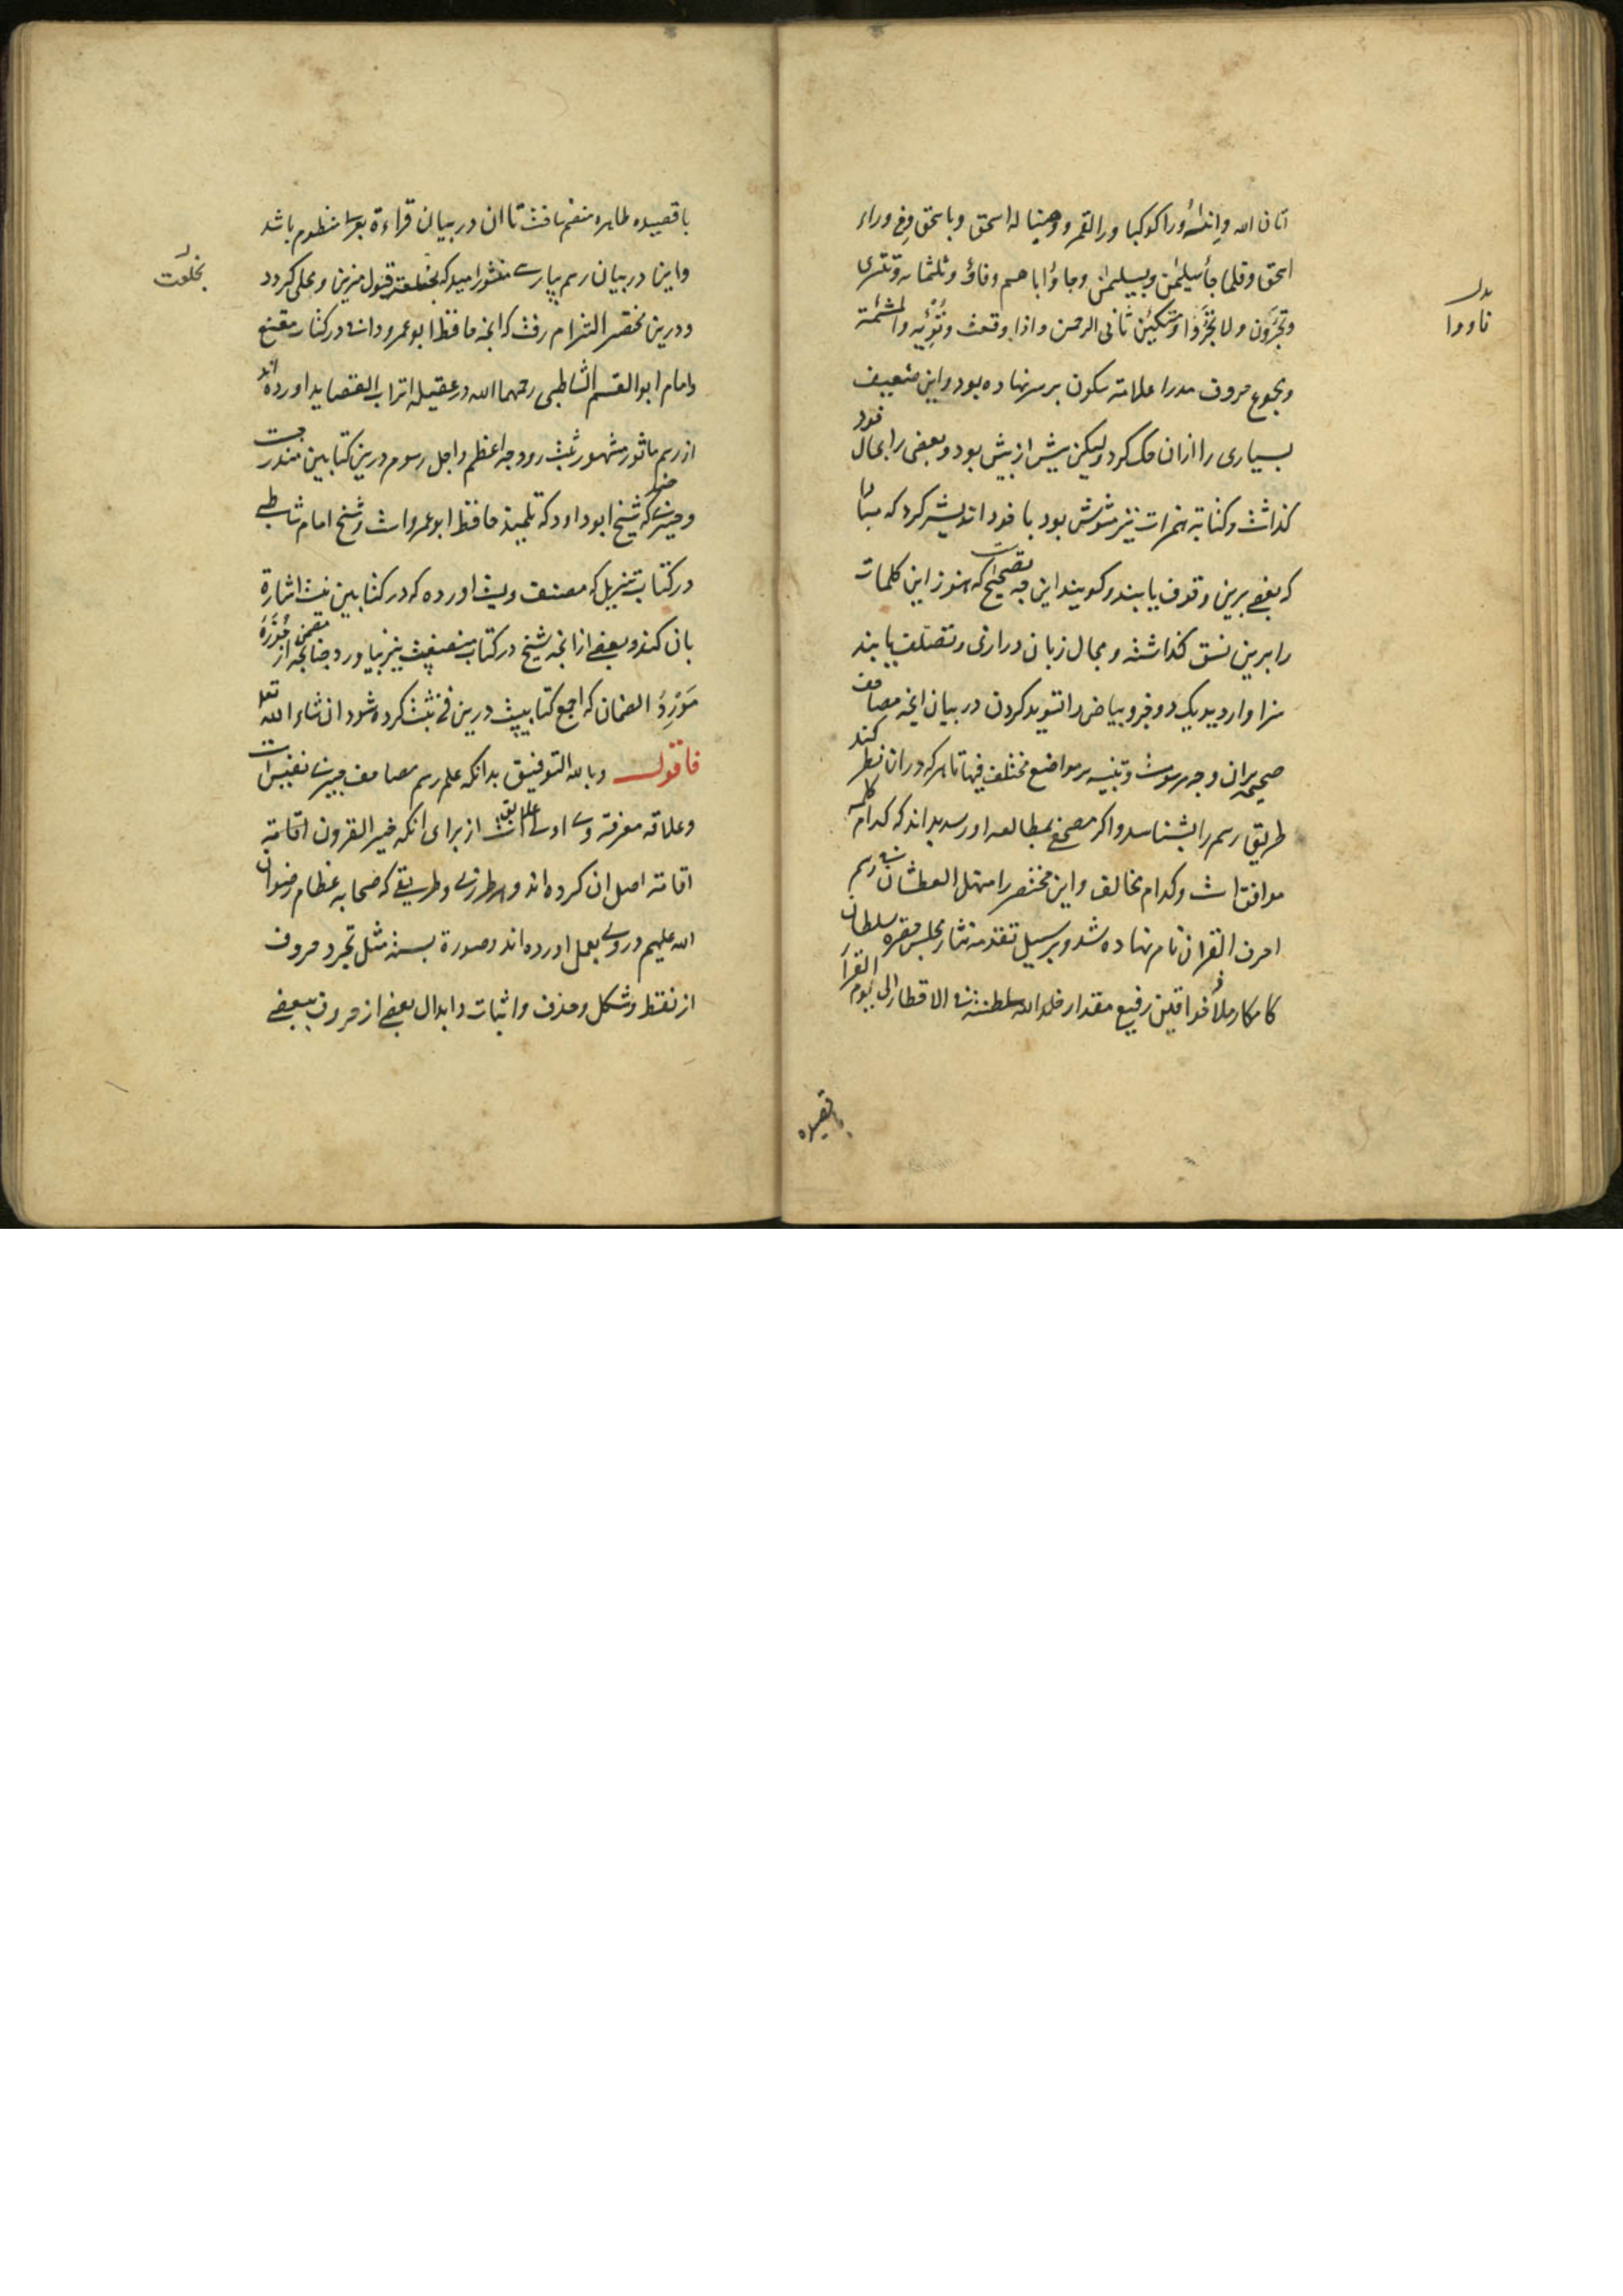 اتان الله وانشأ وراكوكبا ورا القمر ووهبنا له اسحق وباسحق وفی وراء
اسحق وفلما جا سلیمن وبسلیمن وجاؤ اباهم وفاؤ وثلثمایه وتتری
وتجرون ولا تجروا ومتکین ثانی الرحمن واذا وقعت وتؤیه والمشئمة
ومجموع حروف مدرا علامة سکون بر سر نهاده بود و این ضعیف
بسیاری را از ان حک کرد ولیکن بیش از بیش بود و بعضی را بحال خود
کذاشت و کتابة همزات نیز مشوش بود با خود اندیشه کرد که مبادا
که بعضی برین وقوف یابند و کویند این چه تصحیح است که هنوز این کلمات
را برین نسق کذاشته و مجال زبان درازی و تصلف یابند
سزاوار دید یک دو جزو بیاض را تسوید کردن در بیان انچه مصاحف
صحیحه بران وجه مرسومست و تنبیه بر مواضع مختلف فیها تا هر که در ان نظر کند
طریق رسم را بشناسد و اکر مصحفی بمطالعه او رسد بداند که کدام کلمه
موافق است و کدام مخالف و این مختصر را منهل العطشان فی رسم
احرف القران نام نهاده شد و بر سبیل تقدمه نثار مجلس مقره سلطان
کامکار ملاذ خواقین رفیع مقدار خلد الله سلطنته فی الاقطار الی یوم القرار
بدل
فاووا
بقصیده
با قصیده طاهره منضم یافت تا ان در بیان قراءة بود منظوم باشد
و این در بیان رسم بپارسی منثور امید که بخلعت قبول مزین و محلی کردد
بخلعت
و درین مختصر التزام رفت که انچه حافظ ابو عمرو دانی در کتاب مقنع
و امام ابو القسم الشاطبی رحمهما الله در عقیله اتراب القصاید اورده اند
از رسم ماثور مشهور ثبت رود چه اعظم و اجل رسوم درین کتابین مندرجست
و چیزی که شیخ ابو داود که تلمیذ حافظ ابو عمرو است و شیخ امام شاطبی
در کتاب تنزیل که مصنف ویست اورده که در کتابین نیست اشارة
بان کند و بعضی از انچه شیخ در کتاب نیز بیاورد چنانچه از
مورد الضمان که اجمع کتابیست درین فن ثبت کرده شود ان شاء الله تعالی
فاقول وبالله التوفیق بدانکه علم رسم مصاحف چیزی نفیس است
وعلاقه معرفة وی اولی علایق است از برای انکه خیر القرون اقامة
اقامة اصل ان کرده اند و هر طرزی و طریقی که صحابه عظام رضوان
الله علیهم در وی بعمل اورده اند و صورة بسته مثل تجرد حروف
از نقط و شکل و حذف و اثبات و ابدال بعضی از حروف ببعضی